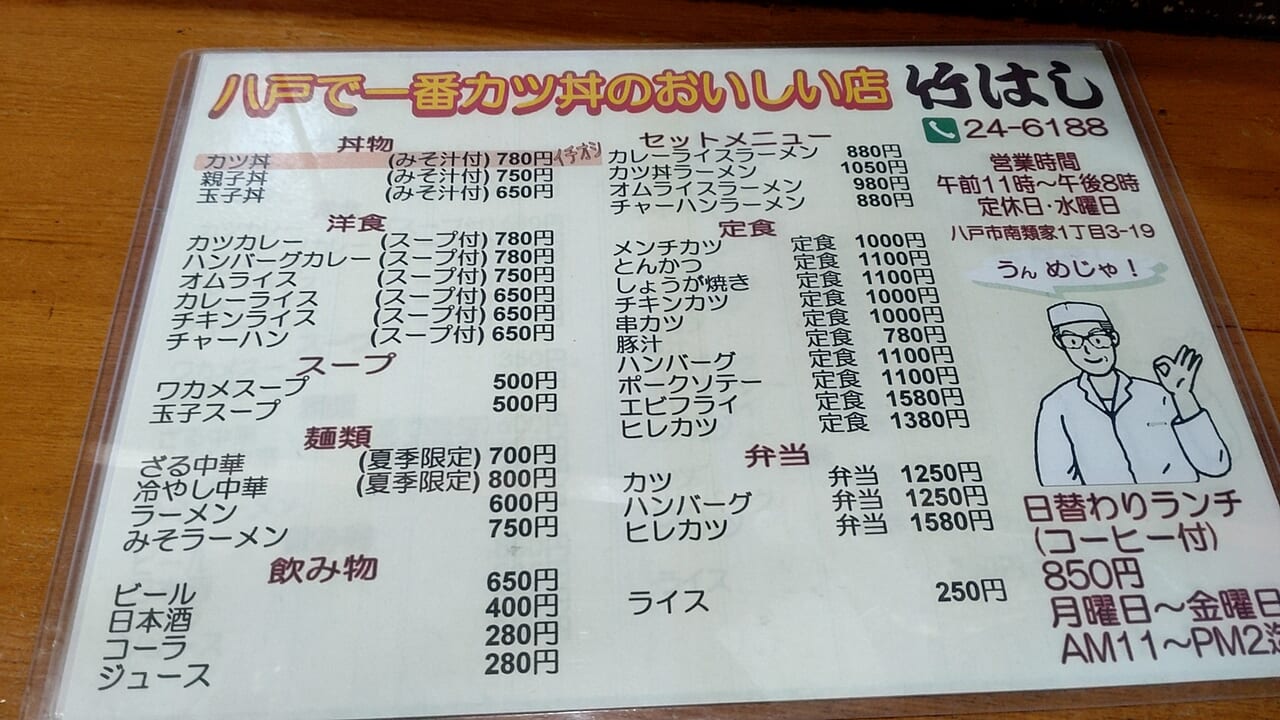 八戸で一番カツ丼のおいしい店 竹はし
24-6188
営業時間
午前11時～午後8時
定休日・水曜日
八戸市南類家1丁目3-19
うん めじゃ！
丼物
カツ丼 (みそ汁付) 780円 イチオシ
親子丼 (みそ汁付) 750円
玉子丼 (みそ汁付) 650円
洋食
カツカレー (スープ付) 780円
ハンバーグカレー (スープ付) 780円
オムライス (スープ付) 750円
カレーライス (スープ付) 650円
チキンライス (スープ付) 650円
チャーハン (スープ付) 650円
スープ
ワカメスープ 500円
玉子スープ 500円
麺類
ざる中華 (夏季限定) 700円
冷やし中華 (夏季限定) 800円
ラーメン 600円
みそラーメン 750円
飲み物
ビール 650円
日本酒 400円
コーラ 280円
ジュース 280円
セットメニュー
カレーライスラーメン 880円
カツ丼ラーメン 1050円
オムライスラーメン 980円
チャーハンラーメン 880円
定食
メンチカツ 定食 1000円
とんかつ 定食 1100円
しょうが焼き 定食 1100円
チキンカツ 定食 1000円
串カツ 定食 1000円
豚汁 定食 780円
ハンバーグ 定食 1100円
ポークソテー 定食 1100円
エビフライ 定食 1580円
ヒレカツ 定食 1380円
弁当
カツ 弁当 1250円
ハンバーグ 弁当 1250円
ヒレカツ 弁当 1580円
ライス 250円
日替わりランチ
(コーヒー付)
850円
月曜日～金曜日
AM11～PM2